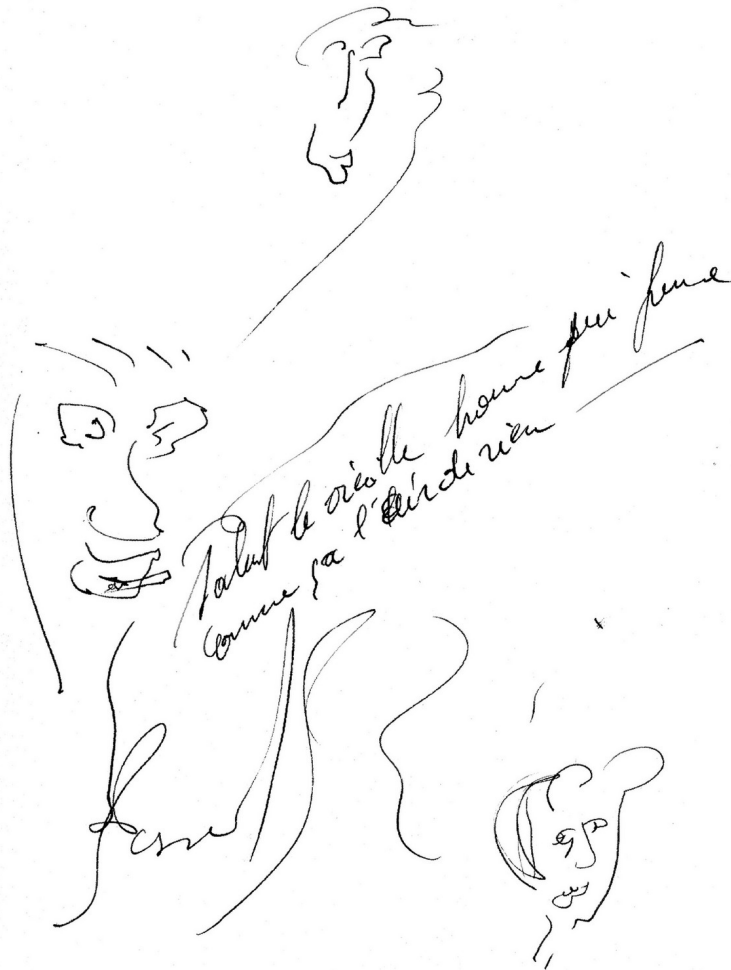 Salut le vieille homme qui fume
comme ça l'air de rien